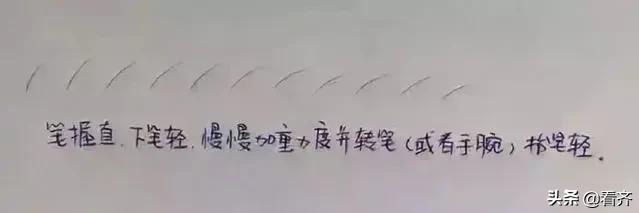 笔握直.下笔轻.慢慢加重力度并转笔(或者手腕)抬笔轻.
头条@看齐